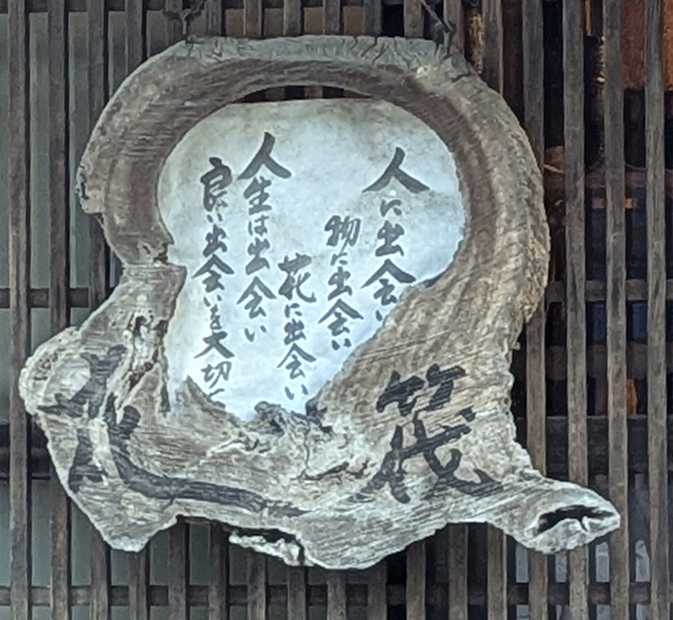 人に出会い
物に出会い
花に出会い
人生は出会い
良い出会いを大切に
筏